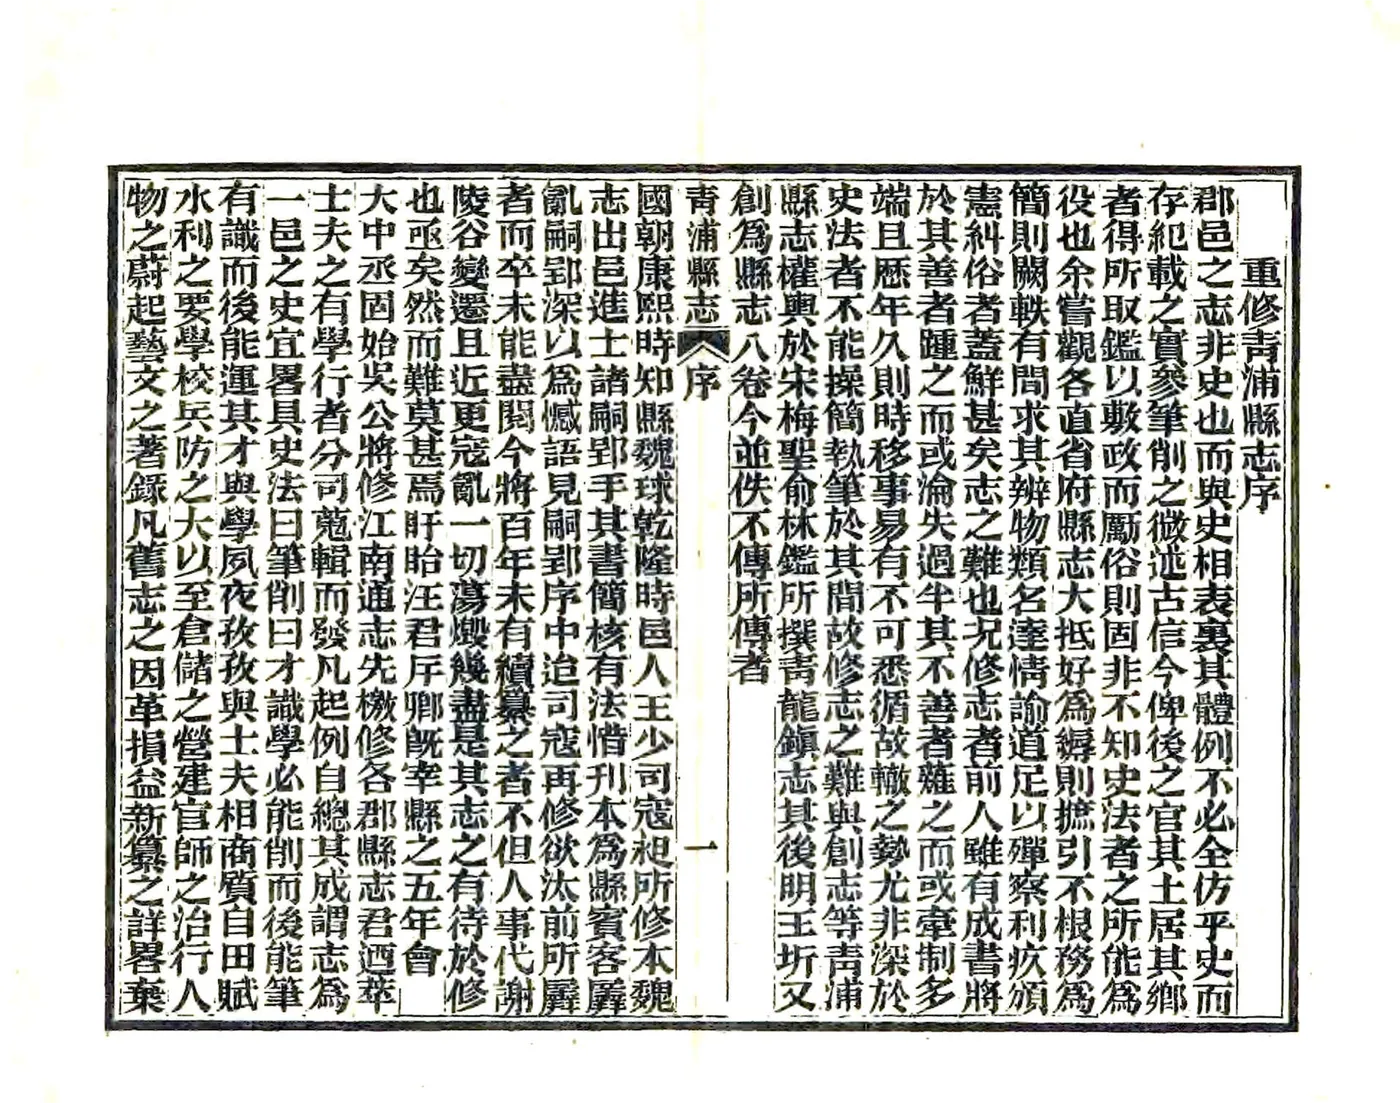 重修靑浦縣志序
郡邑之志非史也而與史相表裏其體例不必全仿乎史而
存紀載之實參筆削之微述古信今俾後之官其土居其鄉
者得所取鑑以敷政而厲俗則固非不知史法者之所能爲
役也余嘗觀各直省府縣志大抵好爲繹則摭引不根務爲
簡則闕軼有間求其辨物類名達情諭道足以殫察利疚頒
憲糾俗者蓋鮮甚矣志之難也況修志者前人雖有成書將
於其善者踵之而或淪失過半其不善者薙之而或牽制多
端且歷年久則時移事易有不可悉循故轍之勢尤非深於
史法者不能操簡執筆於其間故修志之難與創志等靑浦
縣志權輿於宋梅聖俞林鑑所撰靑龍鎭志其後明王圻又
創爲縣志八卷今並佚不傳所傳者
靑浦縣志 序 一
國朝康熙時知縣魏球乾隆時邑人王少司寇昶所修本魏
志出邑進士諸嗣郢手其書簡核有法惜刊本爲縣賓客羼
亂嗣郢深以爲憾語見嗣郢序中迨司寇再修欲汰前所羼
者而卒未能盡閱今將百年未有續纂之者不但人事代謝
陵谷變遷且近更寇亂一切蕩燬幾盡是其志之有待於修
也亟矣然而難莫甚焉盱眙汪君斤卿旣幸縣之五年會
大中丞固始吳公將修江南通志先檄修各郡縣志君迺萃
士夫之有學行者分司蒐輯而發凡起例自總其成謂志爲
一邑之史宜畧具史法曰筆削曰才識學必能削而後能筆
有識而後能運其才與學夙夜孜孜與士夫相商質自田賦
水利之要學校兵防之大以至倉儲之營建官師之治行人
物之蔚起藝文之著錄凡舊志之因革損益新纂之詳畧棄